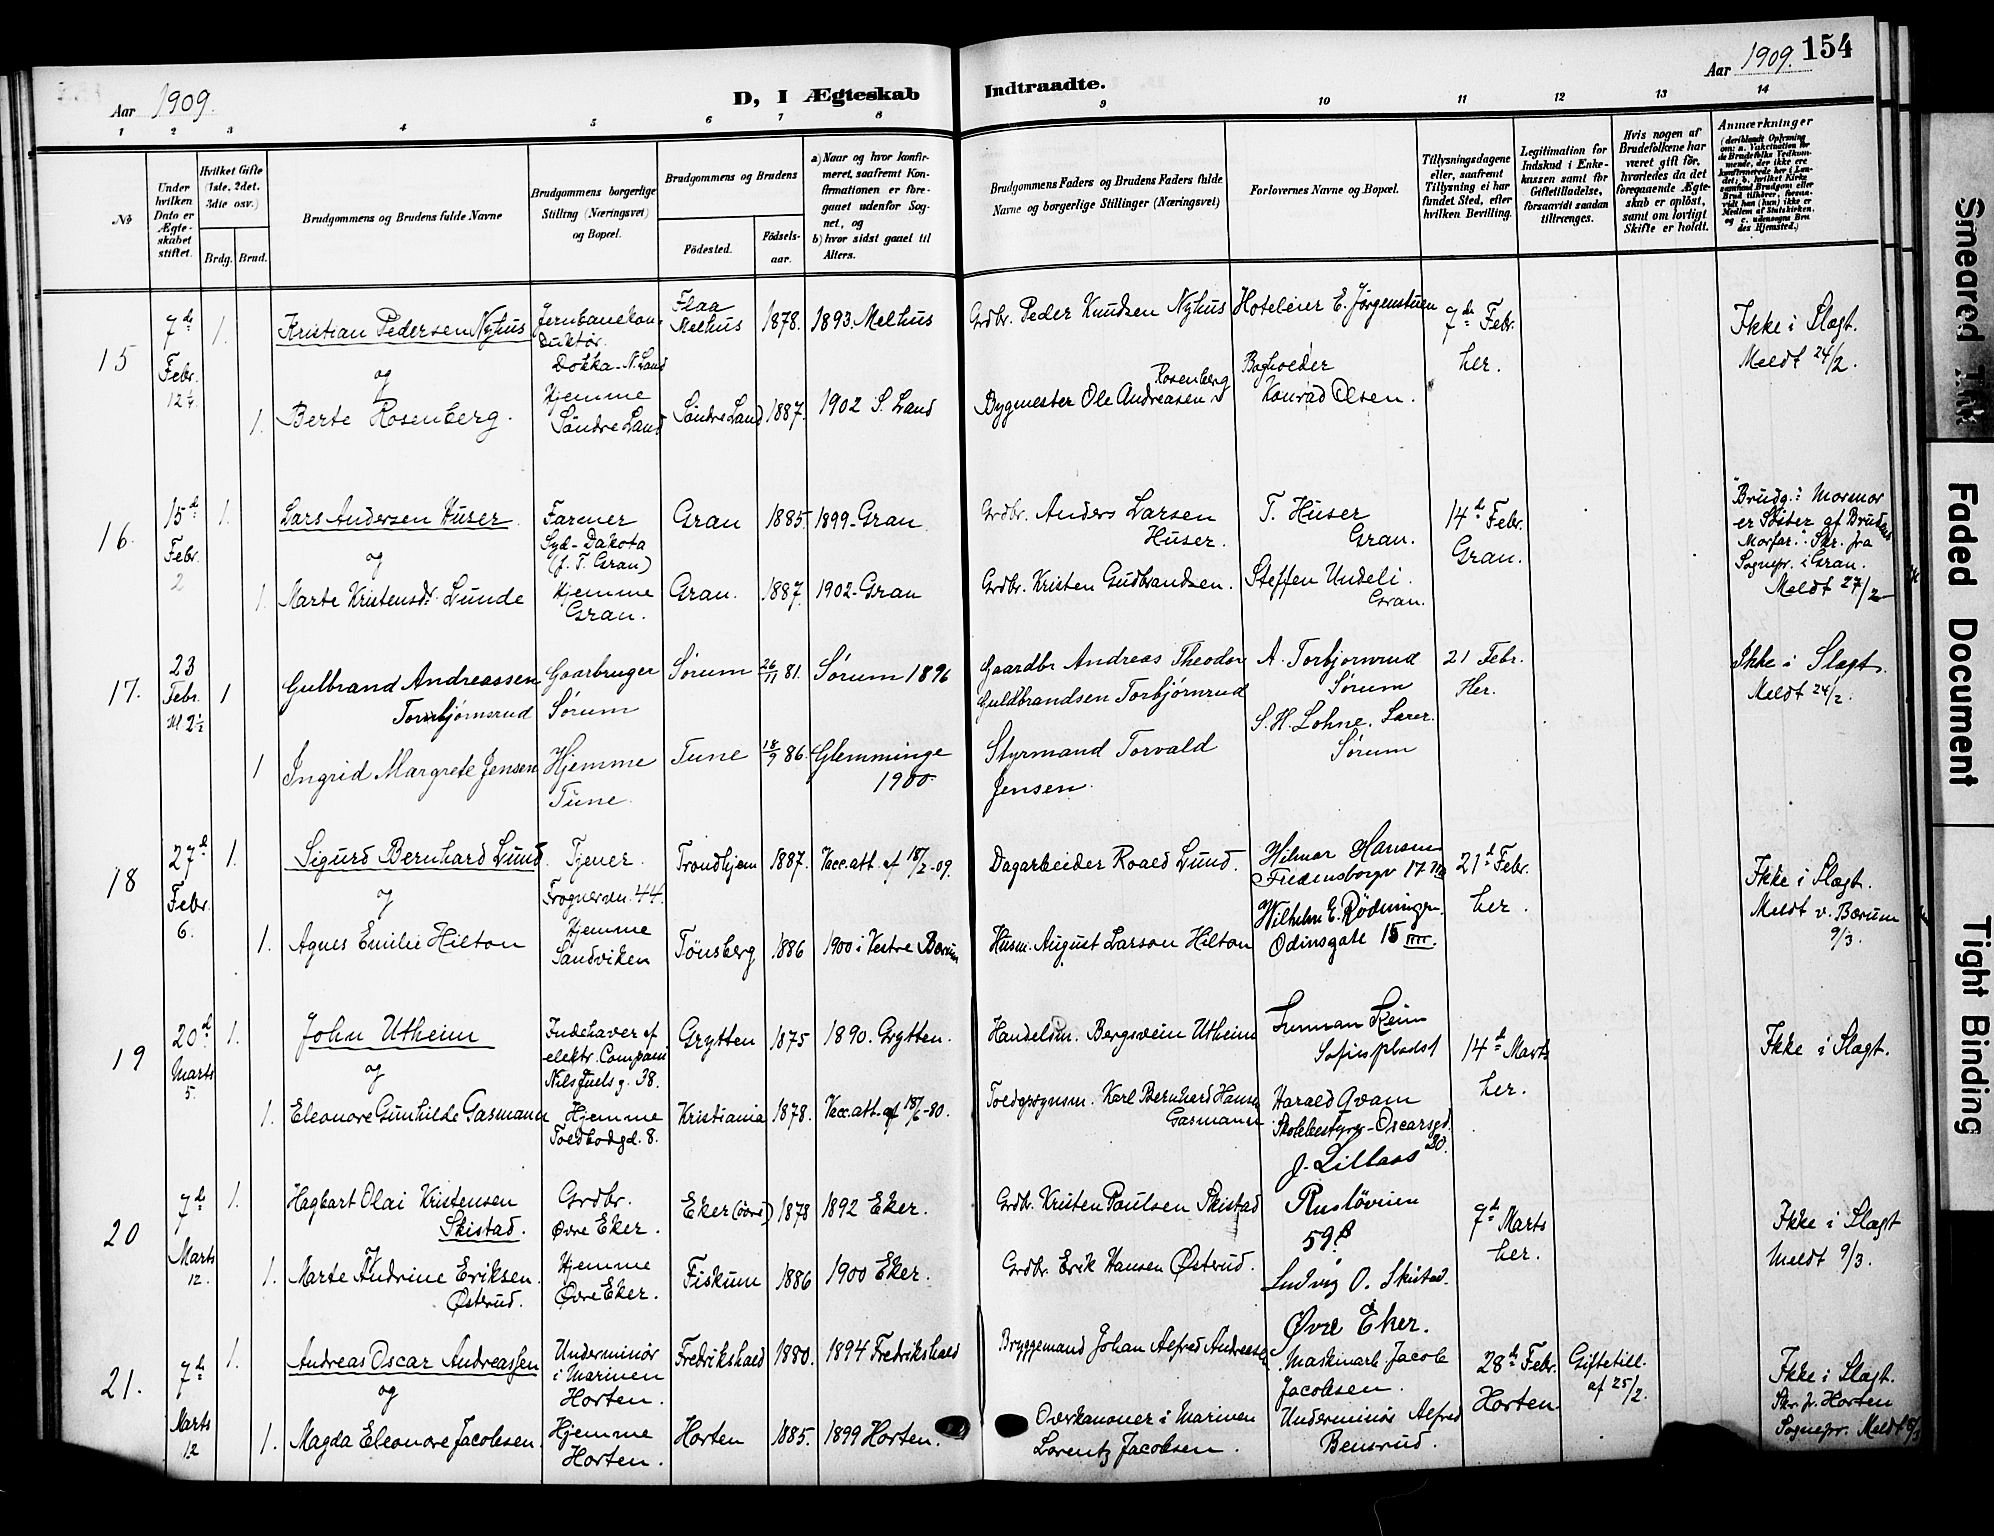 Aar 1909.
D, I Ægteskab Indtraadte.
Aar 1909. 154
1 2 3 4 5 6 7 8 9 10 11 12 13 14
No
Under hvilken Dato er Ægteskabet stiftet.
Hvilket Gifte (1ste, 2det, 3die osv.)
Brdg. Brud.
Brudgommens og Brudens fulde Navne
Brudgommens borgerlige Stilling (Næringsvei) og Bopæl.
Brudgommens og Brudens
Födested. Födselsaar.
a) Naar og hvor konfirmeret, saafremt Konfirmationen er foregaaet udenfor Sognet, og
b) hvor sidst gaaet til Alters.
Brudgommens Faders og Brudens Faders fulde Navne og borgerlige Stillinger (Næringsvei)
Forlovernes Navne og Bopæl.
Tillysningsdagene eller, saafremt Tillysning ei har fundet Sted, efter hvilken Bevilling.
Legitimation for Indskud i Enkekassen samt for Giftetilladelse, forsaavidt saadan tiltrænges.
Hvis nogen af Brudefolkene har været gift för, hvorledes da det foregaaende Ægteskab er oplöst, samt om lovligt Skifte er holdt.
Anmærkninger
15 7de Febr. 12¼ 1. Kristian Pedersen Nyhus Jernbanekonduktør. Dokka - N. Land Flaa Melhus 1878. 1893. Melhus Grdbr. Peder Knudsen Nyhus Hoteleier E. Jørgenstuen 7de Febr. her. Ikke i Slægt. Meldt 24/2.
og
1. Berte Rosenberg. Hjemme Søndre Land Søndre Land 1887. 1902 S. Land Bygmester Ole Andreasen Rosenberg Bogholder Konrad Olsen.
16 15d Febr. 2 1. Lars Andersen Huser Farmer Syd-Dakota (f. T. Gran) Gran 1885. 1899 - Gran. Grdbr. Anders Larsen Huser. T. Huser Gran. 14d Febr. Gran. Brudg.: Mormor er Søster af Brudens Morfar. Skr. fra Sognepr. i Gran. Meldt 27/2
og
1. Marte Kristensdr Lunde Hjemme Gran. Gran. 1887. 1902 - Gran Grdbr. Kristen Gudbrandsen. Steffen Undeli. Gran.
17. 23 Febr. Kl 2½ 1 Gulbrand Andreassen Torbjørnsrud Gaarbruger Sørum Sørum 26/11 81. Sørum 1896 Gaardbr Andreas Theodor Guldbrandsen Torbjørnrud A. Torbjørnrud Sørum 21 Febr. Her. Ikke i Slægt. Meldt 24/2.
1 Ingrid Margrete Jensen Hjemme Tune. Tune 18/9 86. Glemminge 1900. Styrmand Torvald Jensen S. H. Lohne. Lærer. Sørum
18 27d Febr. 6. 1. Sigurd Bernhard Lund Tjener. Frognervn. 44. Trondhjem 1887. Vacc.att. af 18/2-09. Dagarbeider Roald Lund. Hilmar Hansen Fredensborgv 17 21d Febr. her. Ikke i Slægt. Meldt v. Bærum 9/3.
og
1. Agnes Emilie Hilton Hjemme Sandviken Tønsberg 1886 1900 i Vestre Bærum Husm. August Larson Hilton Wilhelm E. Rødningen. Odinsgate 15 IIII.
19 20d Marts 5. 1. John Utheim Indehaver af elektr. Compani Nils Juels g. 38. Grytten 1875 1890. Grytten. Handelsm. Bergsvein Utheim 14d Marts her. Ikke i Slægt.
og
1. Eleonore Gunhilde Gasmann Hjemme Toldbodgd. 8. Kristiania 1878. Vacc.att. af 18/6-80. Toldopsynsm. Karl Bernhard Hansen Gasmann Harald Qvam Skolebestyrer - Oscarsgd. 20.
20 7de Marts 12. 1. Hagbart Olai Kristensen Skistad. Grdbr. Øvre Eker. Eker (øvre) 1878 1892 Eker. Grdbr. Kristen Paulsen Skistad J. Lillaas Rusløvien 59 7de Marts her. Ikke i Slægt Meldt 9/3.
og
1. Marte Andrine Eriksen Østerud. Hjemme Øvre Eker. Fiskum 1886 1900 Eker. Grdbr. Erik Hansen Østrud. Ludvig O. Skistad. Øvre Eker.
21. 7de Marts 12 1. Andreas Oscar Andreassen Underminør i Marinen Horten. Fredrikshald 1880. 1894 Fredrikshald Bryggemand Johan Alfred Andreasen Maskinarb. Jacob Jacobsen. 28de Febr. Horten. Giftetill. af 25/2. Ikke i Slægt. Skr. fr. Horten Sognepr. Meldt
og
1. Magda Eleonore Jacobsen. Hjemme Horten. Horten 1885. 1899 Horten. Overkanoner i Marinen Lorentz Jacobsen. Underminør Alfred Bensrud.
Smeared Ink
Faded Document
Tight Binding